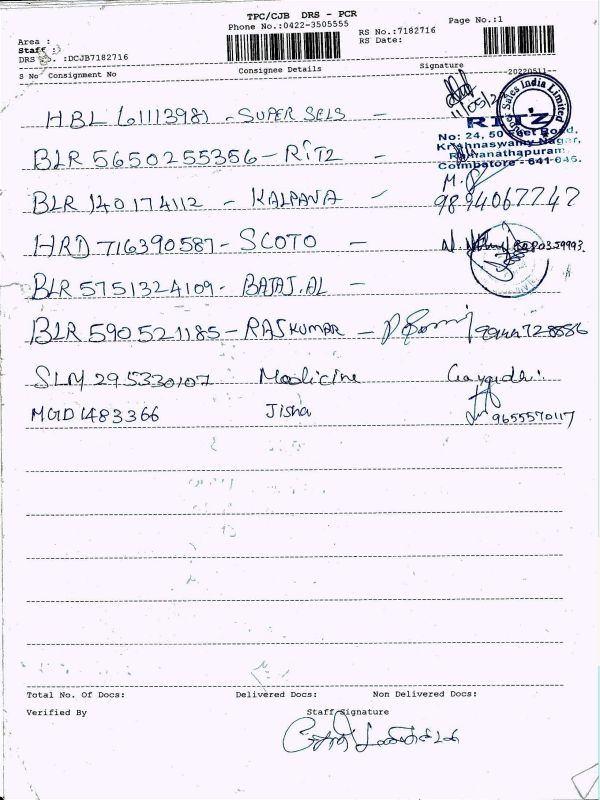 TPC/CJB DRS - PCR
Phone No.:0422-3505555
Page No.:1
RS No.:7182716
RS Date:
Area :
Staff :
DRS No. :DCJB7182716
S No Consignment No Consignee Details Signature
20220511
11/05/2
Sales India Limited
HBL 61113981 - SUPER SELS -
RITZ
No: 24, 50 Feet Road,
Krishnaswamy Nagar,
Ramanathapuram,
Coimbatore - 641 045.
BLR 5650255356 - RITZ -
BLR 140174112 - KALPANA - 9894067747
HRD 716390587 - SCOTO -
BLR 5751324109 - BAJAJ.AL -
BLR 590521185 - RAJKUMAR -
SLM 295330107 Medicine Gayathri
MGD1483366 Jisha 9655570117
Total No. Of Docs: Delivered Docs: Non Delivered Docs:
Verified By Staff Signature